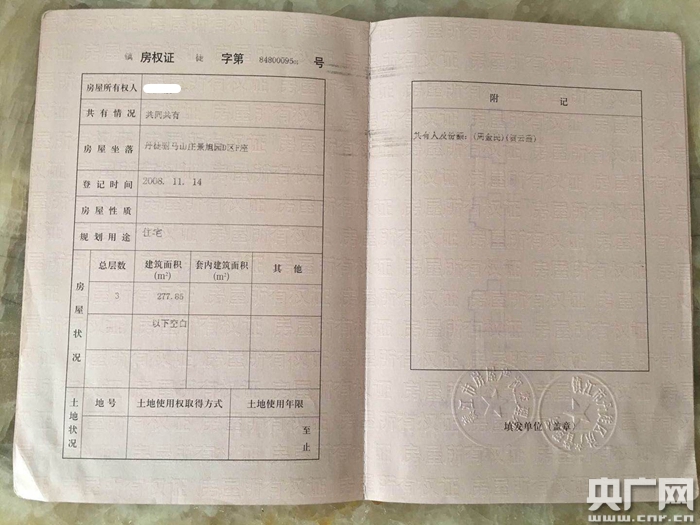 镇 房权证 徒 字第 84800095 号
房屋所有权人
共有情况 共同共有
房屋坐落
登记时间 2008. 11. 14
房屋性质
规划用途 住宅
房屋状况
总层数 建筑面积 (m²) 套内建筑面积 (m²) 其他
3 277.85
以下空白
土地状况
地号 土地使用权取得方式 土地使用年限
至
止
附 记
共有人及份额:
填发单位（盖章）
央广网
www.cnr.cn